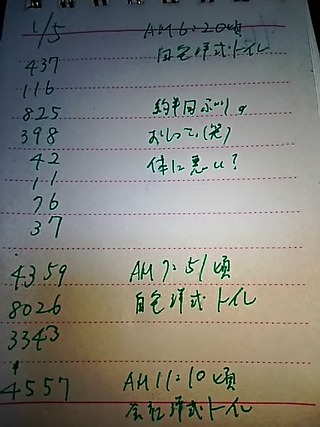 1/5 AM6:20頃
自宅洋式トイレ
437
116
825 約半日ぶり。
398 おしっこ(笑)
42 体に悪い?
11
76
37
4359 AM7:51頃
8026 自宅洋式トイレ
3343
4557 AM11:10頃
会社洋式トイレ